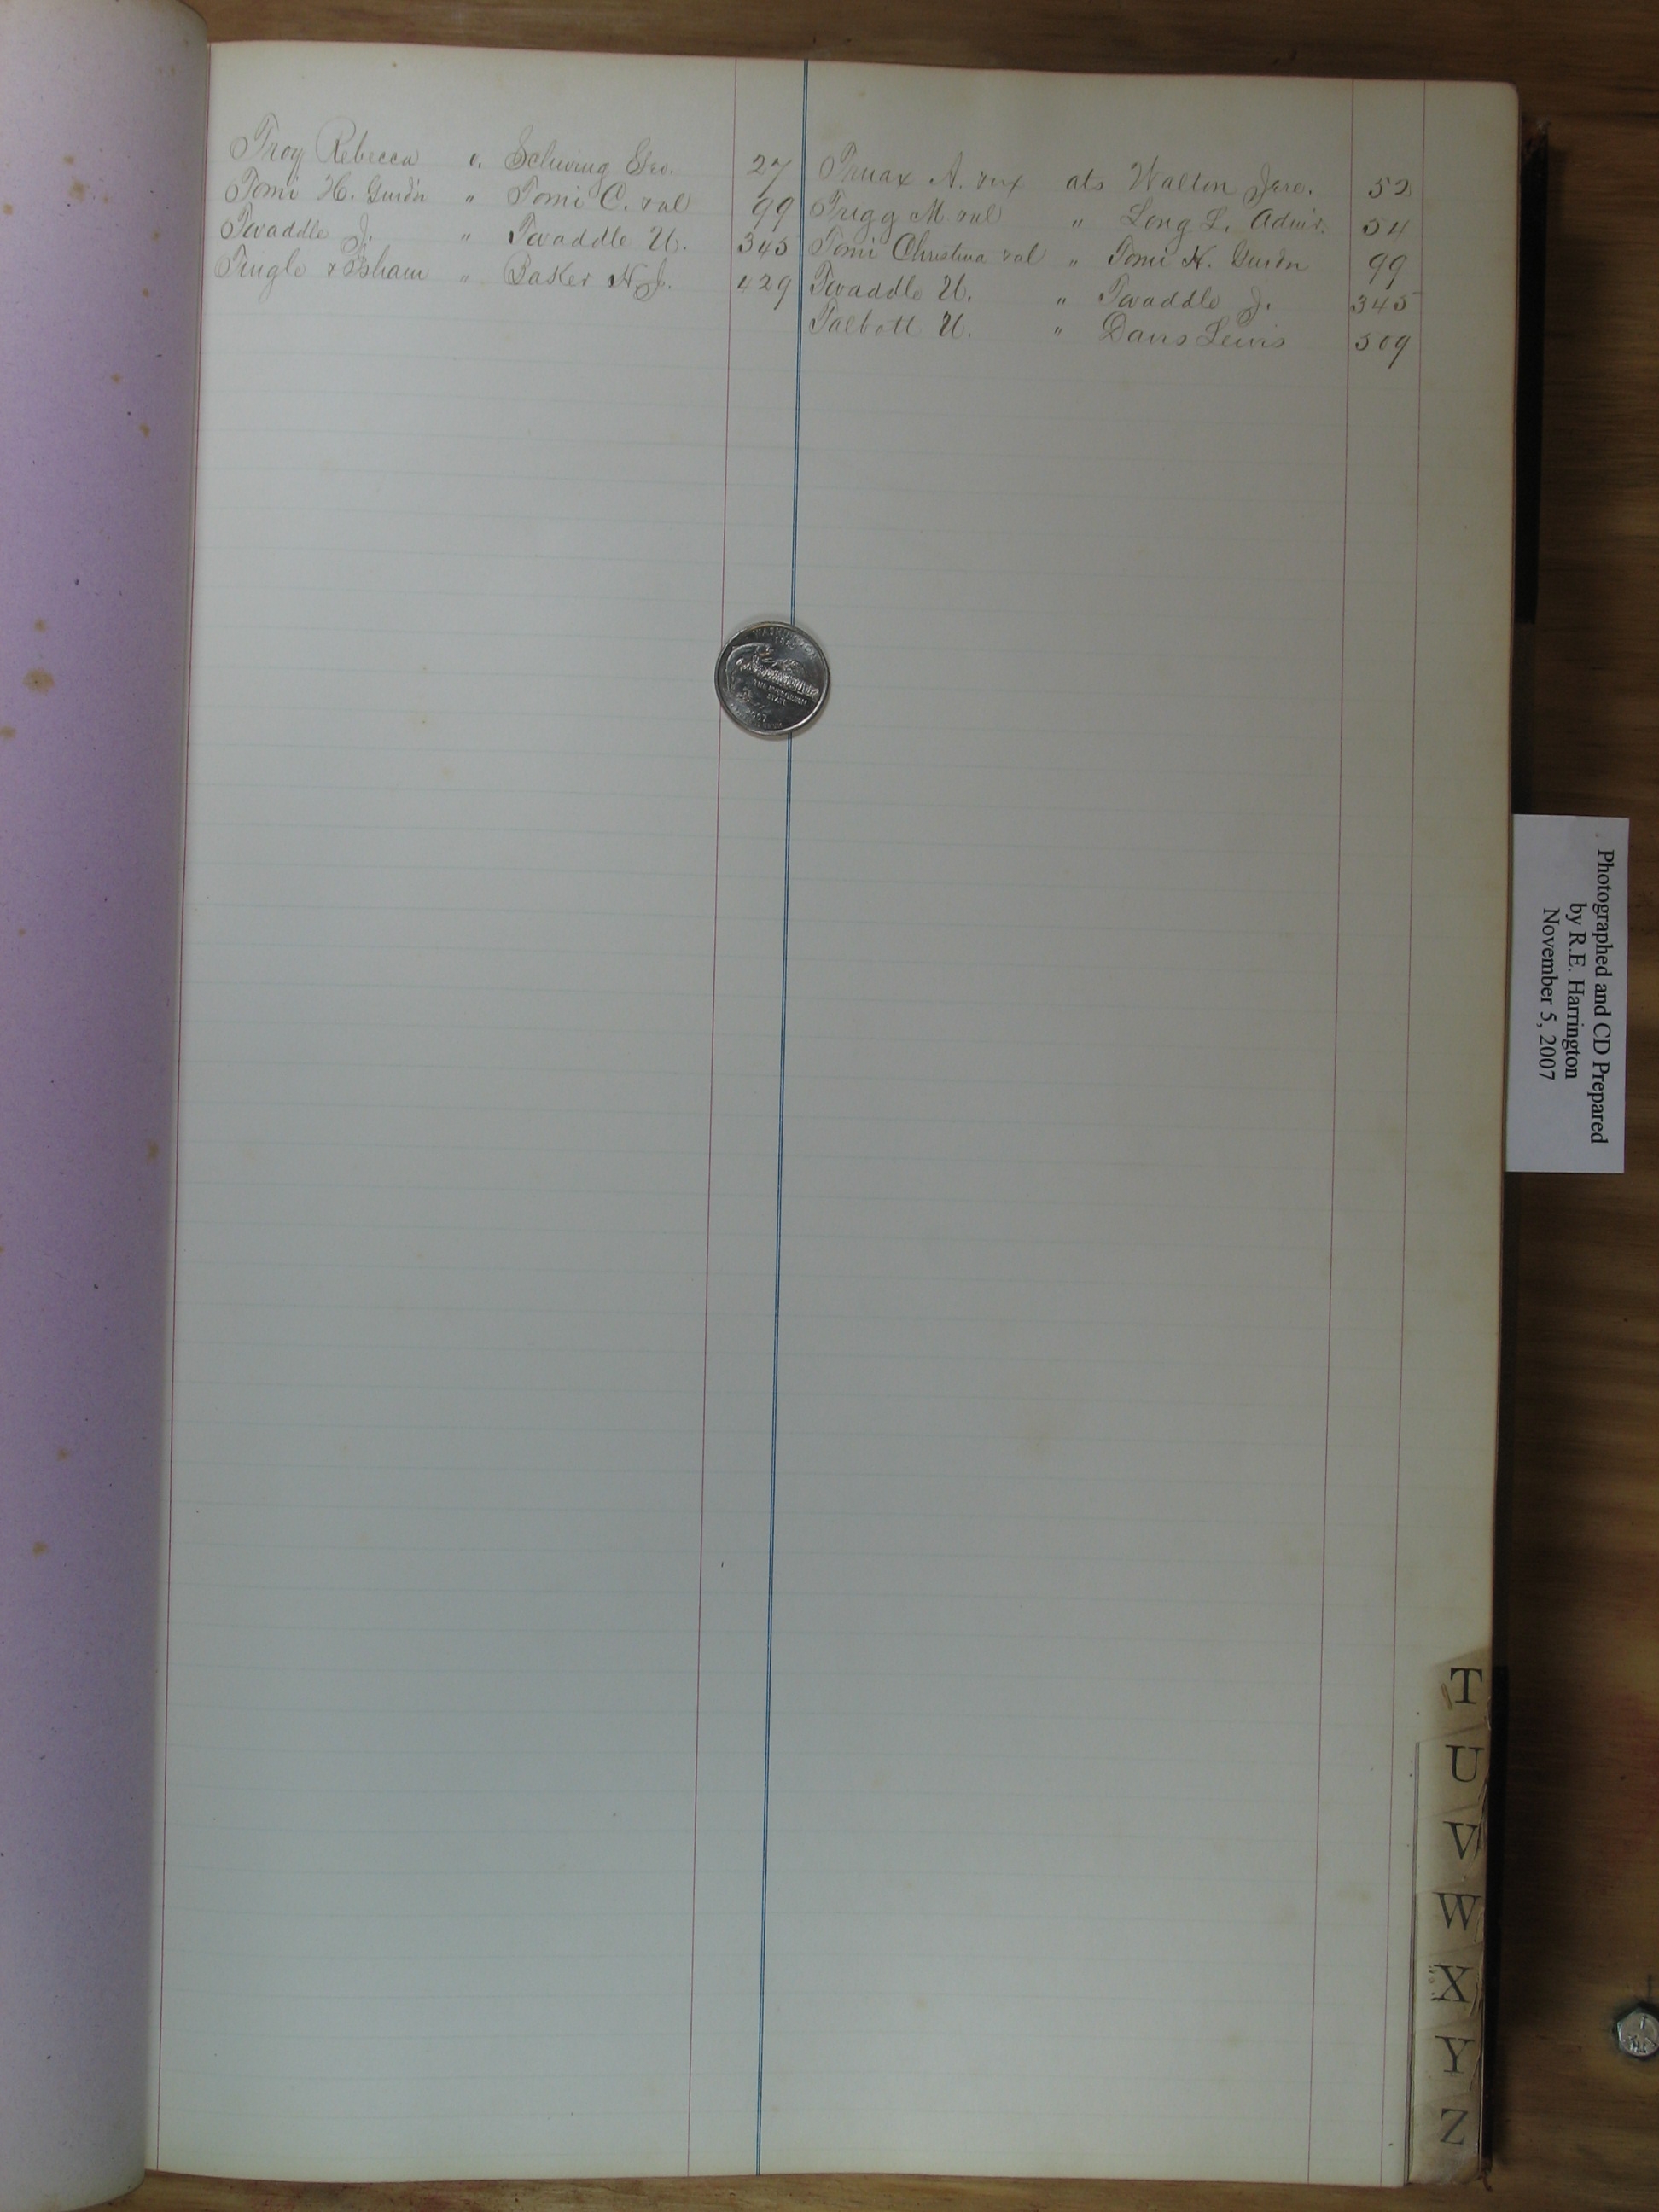 Troy Rebecca v. Schwing Geo. 27
Tomi H. Gurdn " Tomi C. & al 99
Twaddle J. " Twaddle U. 345
Tingle & Isham " Baker H. J. 429
Truax A. & ux ats Walton Jere. 52
Trigg M. & al " Long L. Admr. 54
Tomi Christina & al " Tomi H. Gurdn 99
Twaddle U. " Twaddle J. 345
Talbott U. " Davis Lewis 509
WASHINGTON
1889
THE EVERGREEN
STATE
2007
Photographed and CD Prepared
by R.E. Harrington
November 5, 2007
T
U
V
W
X
Y
Z